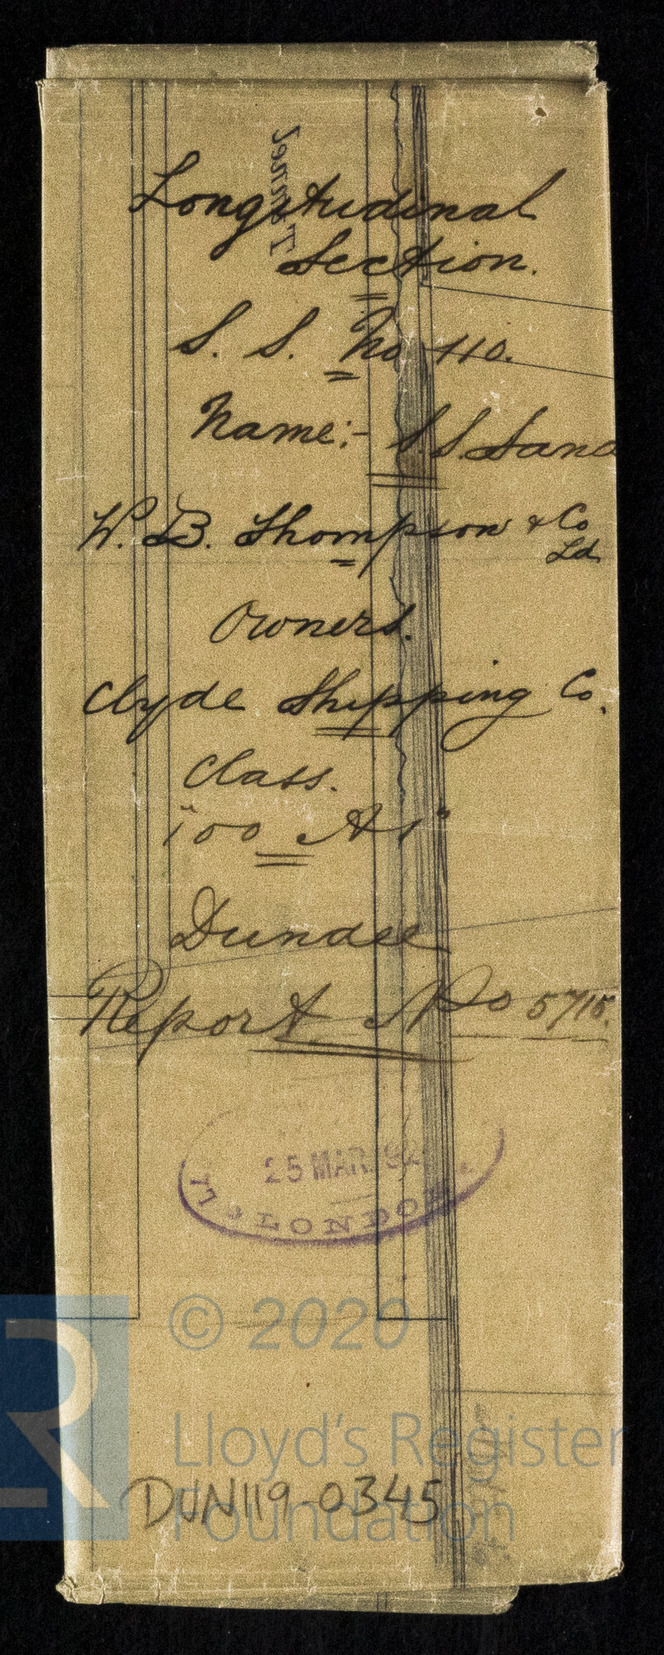 Tunnel
Longitudinal
Section.
S. S. No 110.
Name:- S.S. Sand
W. B. Thompson & Co
Ld
Owners.
Clyde Shipping Co.
Class.
"100 A1"
Dundee
Report No 5715.
25 MAR 92
LONDON
© 2020
Lloyd's Register
Foundation
DUN119-0345